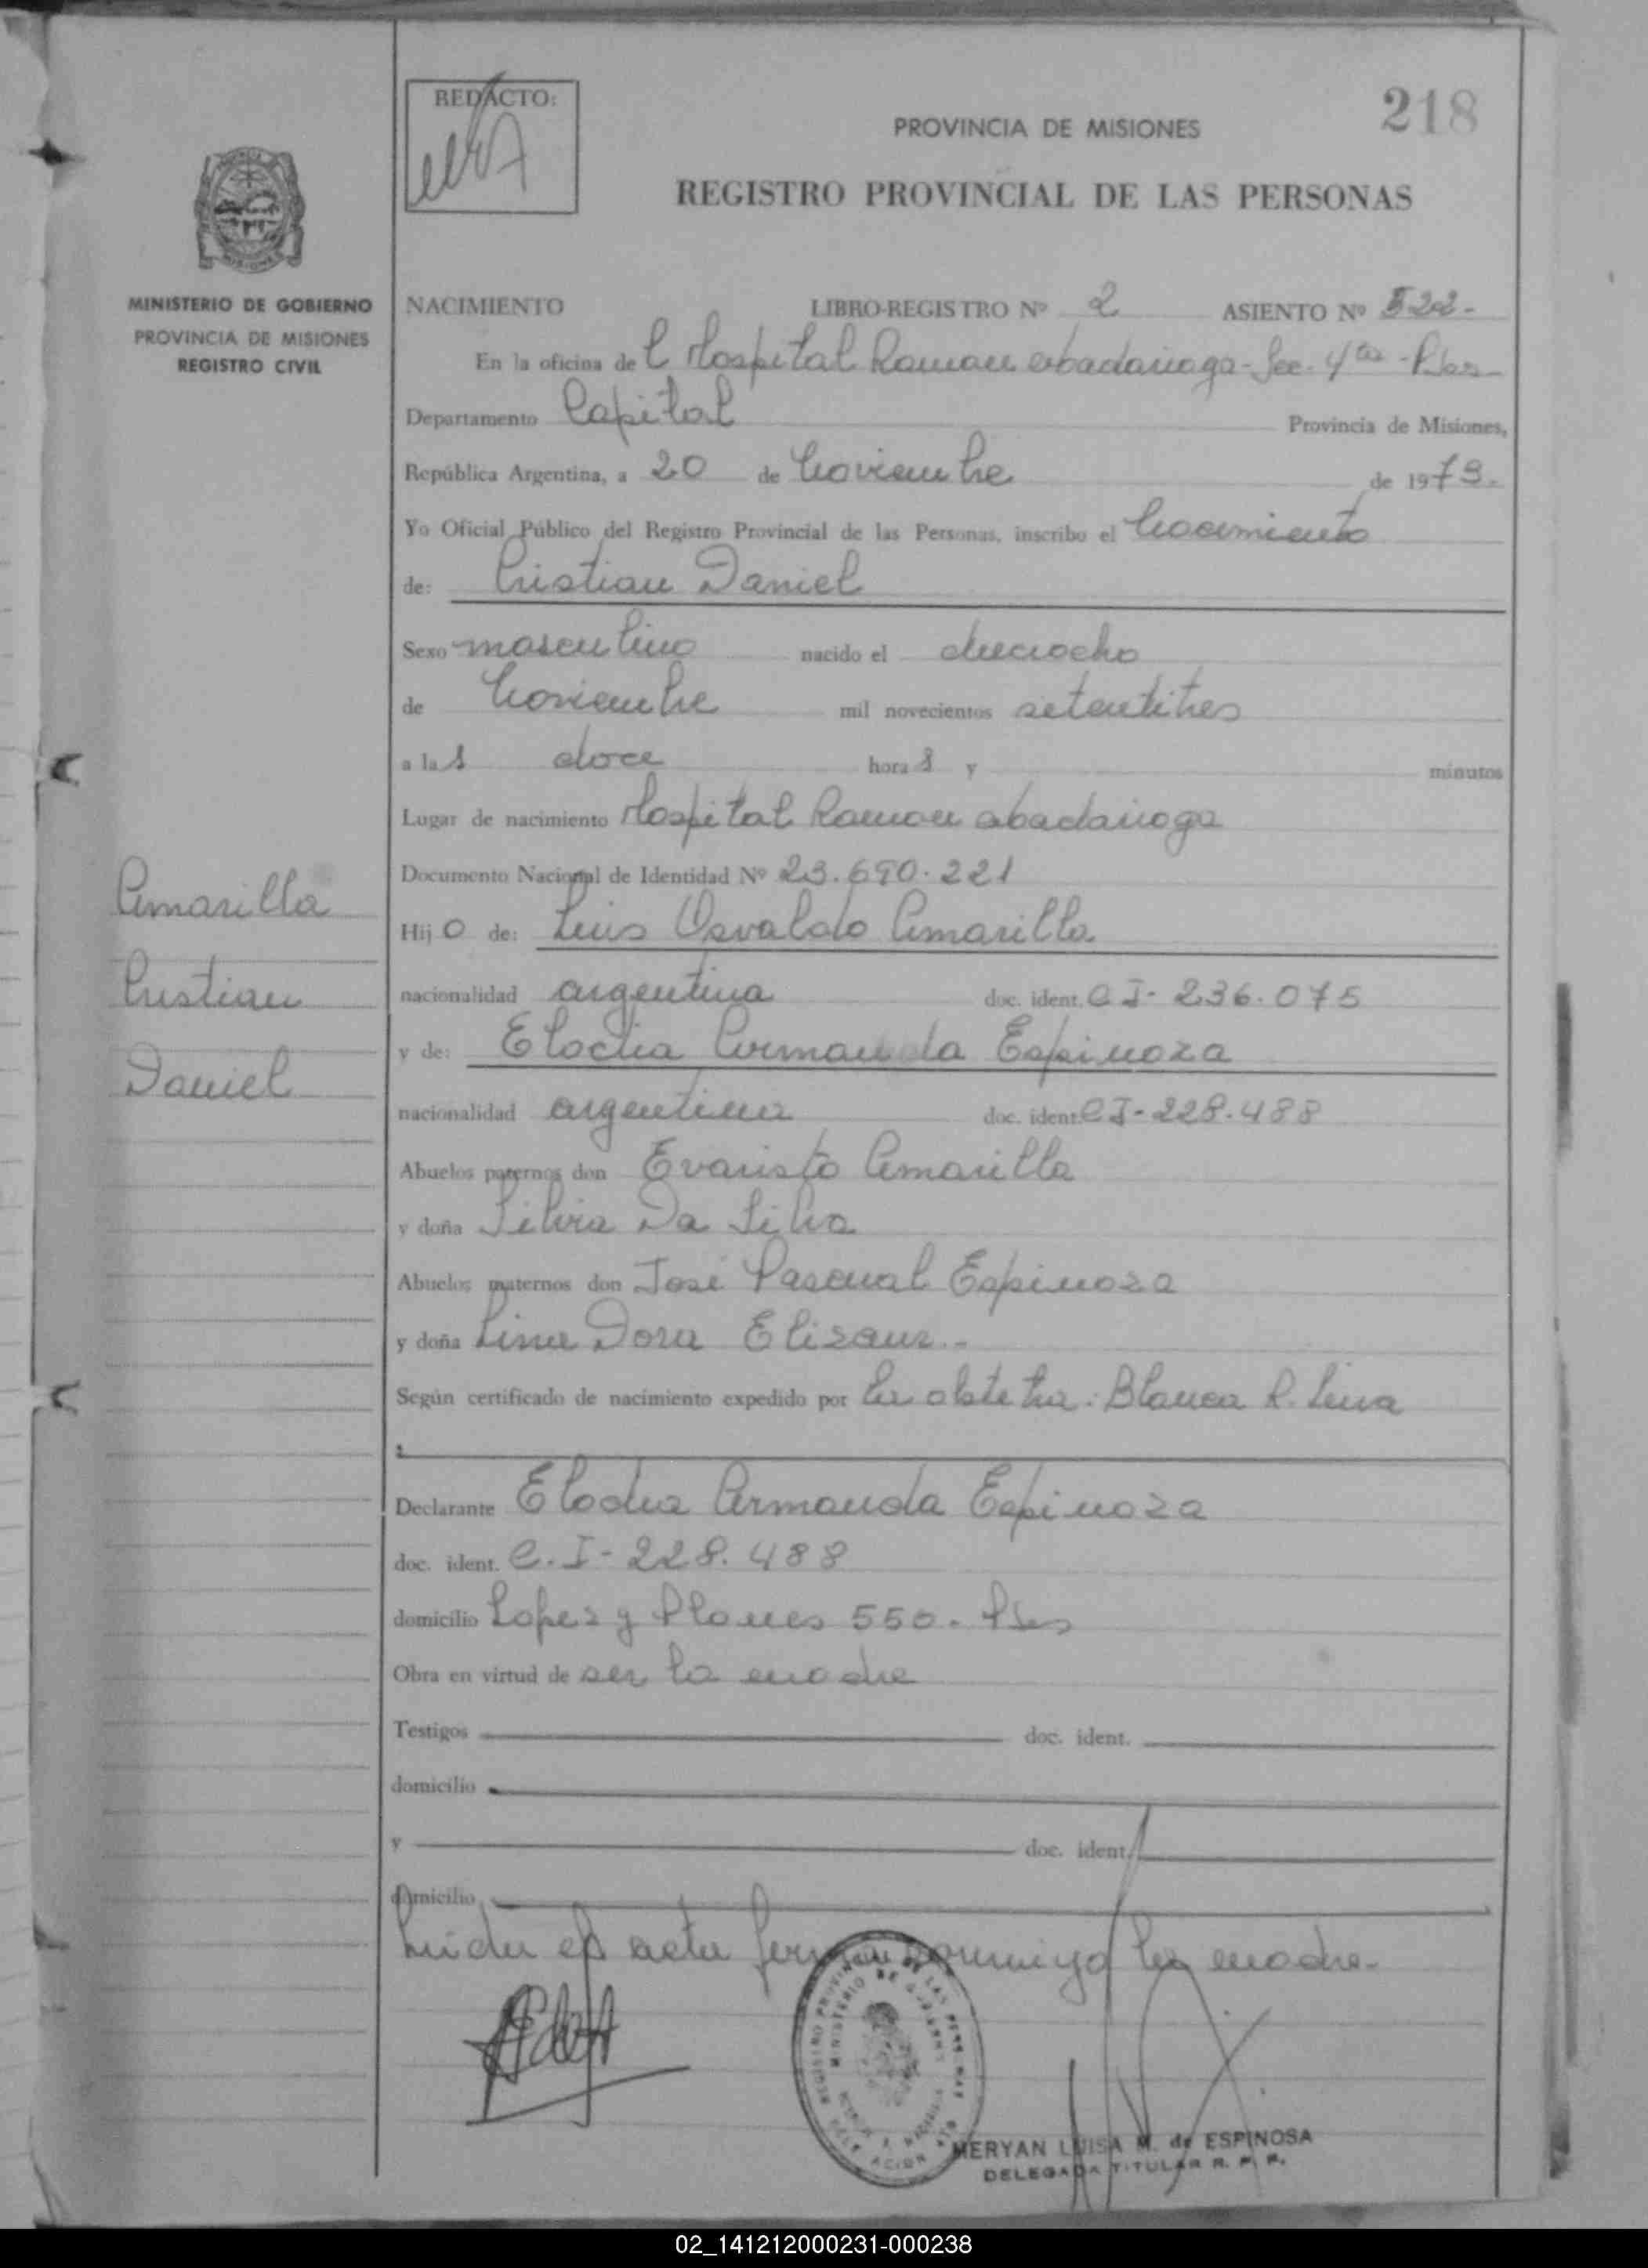 REDACTO:
218
PROVINCIA DE MISIONES
REGISTRO PROVINCIAL DE LAS PERSONAS
MINISTERIO DE GOBIERNO
PROVINCIA DE MISIONES
REGISTRO CIVIL
NACIMIENTO LIBRO-REGISTRO Nº 2 ASIENTO Nº 522-
En la oficina de l Hospital Ramon abadariaga - Sec. 4ta - Pdas
Departamento Capital Provincia de Misiones,
República Argentina, a 20 de Noviembre de 1973.
Yo Oficial Público del Registro Provincial de las Personas, inscribo el Nacimiento
de: Cristian Daniel
Sexo masculino nacido el dieciocho
de Noviembre mil novecientos setentitres
a las doce horas y minutos
Lugar de nacimiento Hospital Ramon abadariaga
Documento Nacional de Identidad Nº 23.690.221
Hijo de: Luis Osvaldo Amarilla
nacionalidad argentina doc. ident. C I - 236.075
y de: Elodia Armanda Espinoza
nacionalidad argentina doc. ident. C I - 228.488
Abuelos paternos don Evaristo Amarilla
y doña Silvia Da Silva
Abuelos maternos don José Pascual Espinoza
y doña Lina Dora Elizaur.-
Según certificado de nacimiento expedido por la obstetra: Blanca R. Leiva
Declarante Elodia Armanda Espinoza
doc. ident. C.I - 228.488
domicilio Lopez y Planes 550 - Pdas
Obra en virtud de ser la madre
Testigos doc. ident.
domicilio
y doc. ident.
domicilio
Leida el acta firman conmigo la madre.-
Amarilla
Cristian
Daniel
REGISTRO PROVINCIAL DE LAS PERSONAS
MINISTERIO DE GOBIERNO
MERYAN LUISA M. de ESPINOSA
DELEGADA TITULAR R. P. P.
02_141212000231-000238